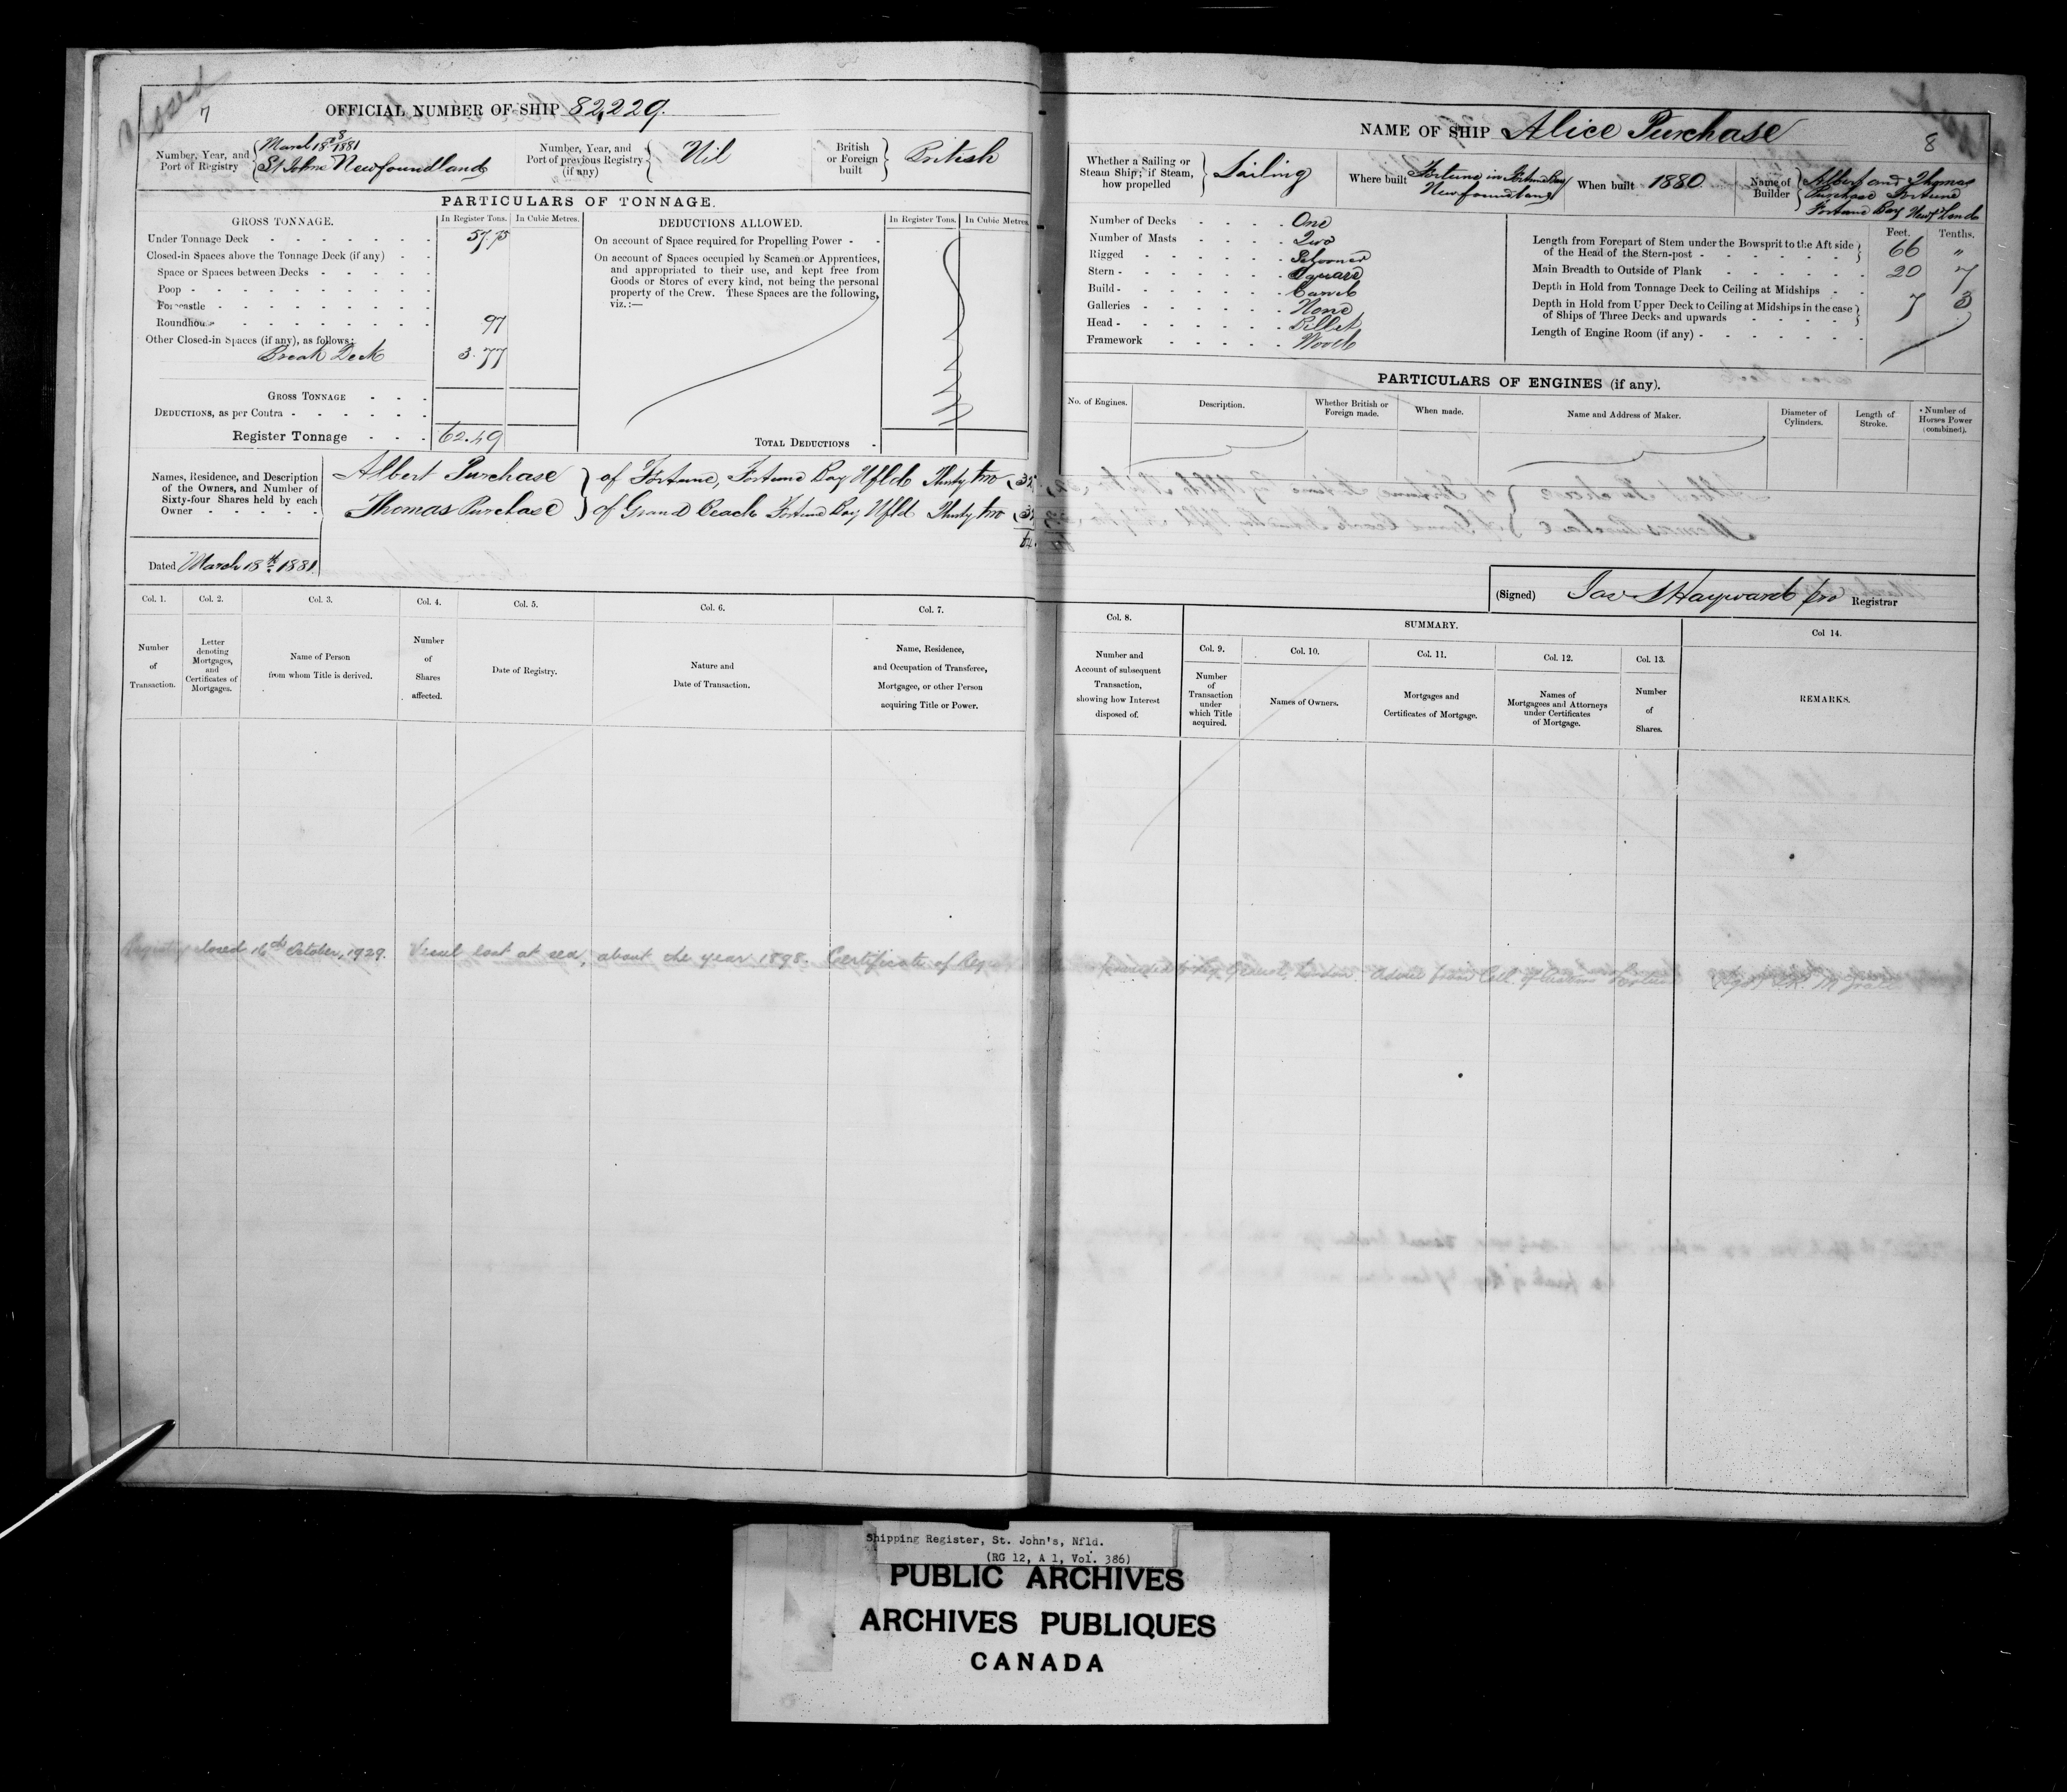 Closed
7
OFFICIAL NUMBER OF SHIP 82,229.
Number, Year, and Port of Registry
8
March 18th 1881
St Johns Newfoundland
Number, Year, and Port of previous Registry (if any)
Nil
British or Foreign built
British
PARTICULARS OF TONNAGE.
GROSS TONNAGE. In Register Tons. In Cubic Metres.
DEDUCTIONS ALLOWED. In Register Tons. In Cubic Metres.
Under Tonnage Deck 57.75
Closed-in Spaces above the Tonnage Deck (if any)
Space or Spaces between Decks
Poop
Forecastle
Roundhouse 97
Other Closed-in Spaces (if any), as follows:
Break Deck 3.77
GROSS TONNAGE
DEDUCTIONS, as per Contra
Register Tonnage 62.49
On account of Space required for Propelling Power
On account of Spaces occupied by Seamen or Apprentices,
and appropriated to their use, and kept free from
Goods or Stores of every kind, not being the personal
property of the Crew. These Spaces are the following,
viz.:—
TOTAL DEDUCTIONS
Names, Residence, and Description
of the Owners, and Number of
Sixty-four Shares held by each
Owner
Albert Purchase } of Fortune, Fortune Bay Nfld Thirty two (32
Thomas Purchase } of Grand Beach Fortune Bay Nfld Thirty two (32
64
Dated March 18th 1881
Col. 1. Col. 2. Col. 3. Col. 4. Col. 5. Col. 6. Col. 7.
Number of Transaction.
Letter denoting Mortgages, and Certificates of Mortgages.
Name of Person from whom Title is derived.
Number of Shares affected.
Date of Registry.
Nature and Date of Transaction.
Name, Residence, and Occupation of Transferee, Mortgagee, or other Person acquiring Title or Power.
Registry closed 16th October, 1929. Vessel lost at sea, about the year 1898. Certificate of Reg.
NAME OF SHIP Alice Purchase
8
Whether a Sailing or Steam Ship; if Steam, how propelled
Sailing
Where built
Fortune in Fortune Bay
Newfoundland
When built 1880
Name of Builder
Albert and Thomas
Purchase Fortune
Fortune Bay
Number of Decks One
Number of Masts Two
Rigged Schooner
Stern Square
Build Carvel
Galleries None
Head Billet
Framework Wood
Feet. Tenths.
Length from Forepart of Stem under the Bowsprit to the Aft side of the Head of the Stern-post 66 "
Main Breadth to Outside of Plank 20 7
Depth in Hold from Tonnage Deck to Ceiling at Midships 7 3
Depth in Hold from Upper Deck to Ceiling at Midships in the case of Ships of Three Decks and upwards
Length of Engine Room (if any)
PARTICULARS OF ENGINES (if any).
No. of Engines.
Description.
Whether British or Foreign made.
When made.
Name and Address of Maker.
Diameter of Cylinders.
Length of Stroke.
Number of Horses Power (combined).
(Signed) Hayward pro Registrar
Col. 8.
SUMMARY.
Col. 9. Col. 10. Col. 11. Col. 12. Col. 13. Col 14.
Number and Account of subsequent Transaction, showing how Interest disposed of.
Number of Transaction under which Title acquired.
Names of Owners.
Mortgages and Certificates of Mortgage.
Names of Mortgagees and Attorneys under Certificates of Mortgage.
Number of Shares.
REMARKS.
Shipping Register, St. John's, Nfld.
(RG 12, A 1, Vol. 386)
PUBLIC ARCHIVES
ARCHIVES PUBLIQUES
CANADA